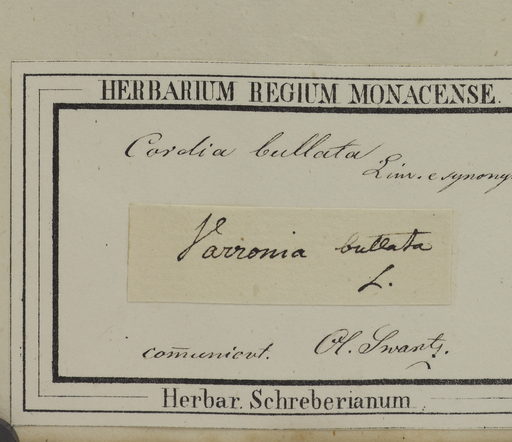 HERBARIUM REGIUM MONACENSE.
Cordia bullata
Linn. e synony
Varronia bullata
L.
com̄unicvt. Ol. Swartz.
Herbar. Schreberianum